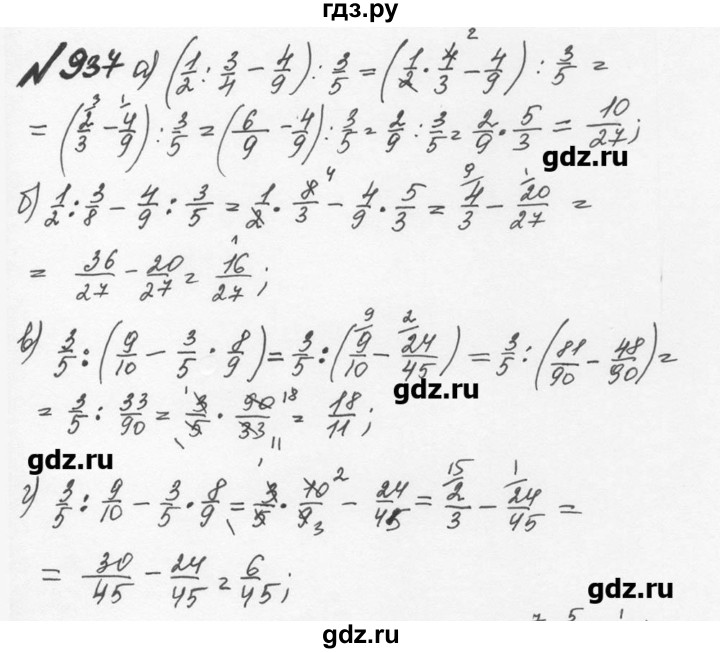 гдз.ру
№937 а) (1/2 : 3/4 − 4/9) : 3/5 = (1/2 · 4/3 − 4/9) : 3/5 = 2
= (2/3 − 4/9) : 3/5 = (6/9 − 4/9) : 3/5 = 2/9 : 3/5 = 2/9 · 5/3 = 10/27; 3 1
gdz.ru
б) 1/2 : 3/8 − 4/9 : 3/5 = 1/2 · 8/3 − 4/9 · 5/3 = 4/3 − 20/27 = 4 9 1
= 36/27 − 20/27 = 16/27; 1
в) 3/5 : (9/10 − 3/5 · 8/9) = 3/5 : (9/10 − 24/45) = 3/5 : (81/90 − 48/90) = 9 2
gdz.ru
= 3/5 : 33/90 = 3/5 · 90/33 = 18/11; 1 1 18 11
gdz.ru
г) 3/5 : 9/10 − 3/5 · 8/9 = 3/5 · 10/9 − 24/45 = 2/3 − 24/45 = 1 1 2 3 15 1
= 30/45 − 24/45 = 6/45;
gdz.ru
gdz.ru